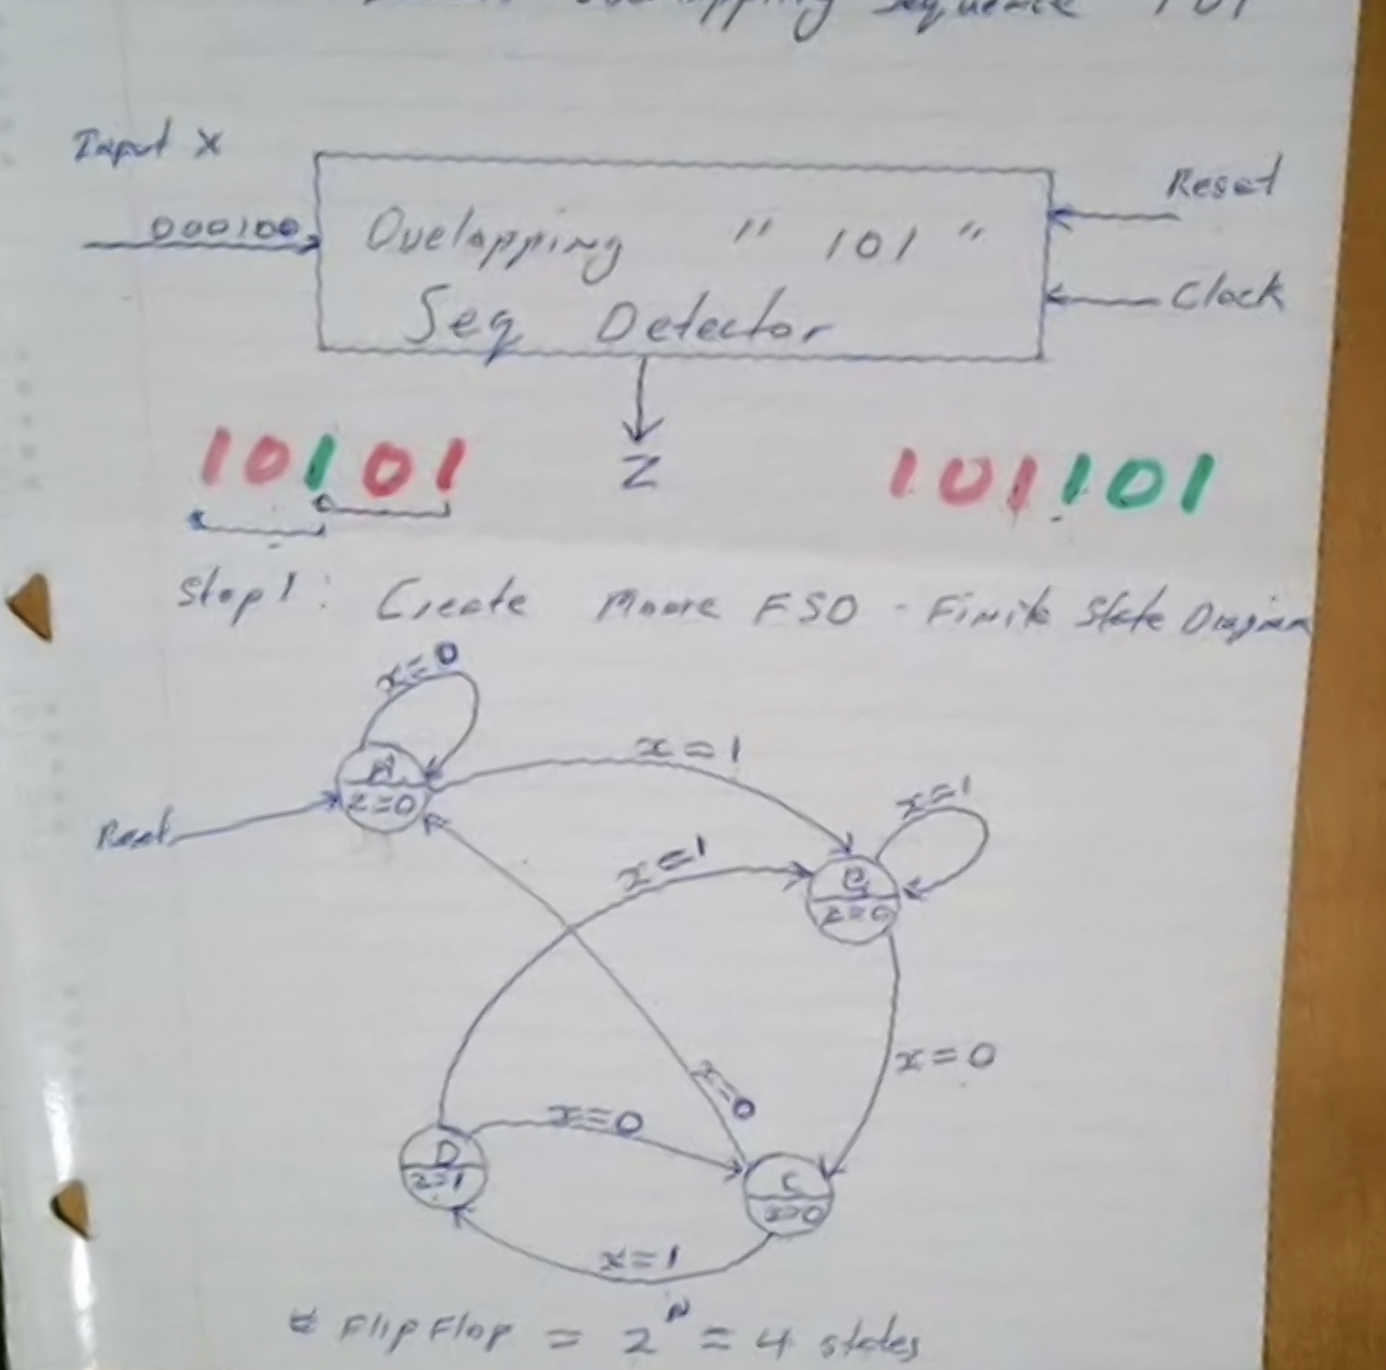 Overlapping Sequence 101
Input X
Reset
000100
Ovelapping " 101 "
Clock
Seq Detector
10101
Z
101101
Step 1: Create Moore FSD - Finite State Diagram
x=0
x=1
A
z=0
x=1
Reset
x=1
B
z=0
x=0
x=0
x=0
D
z=1
C
z=0
x=1
# Flip Flop = 2^N = 4 states